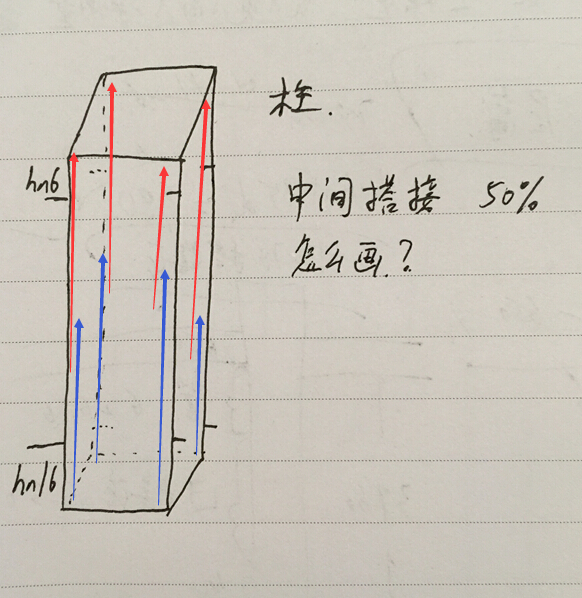 柱.
hn6
中间搭接 50%
怎么画?
hn/6